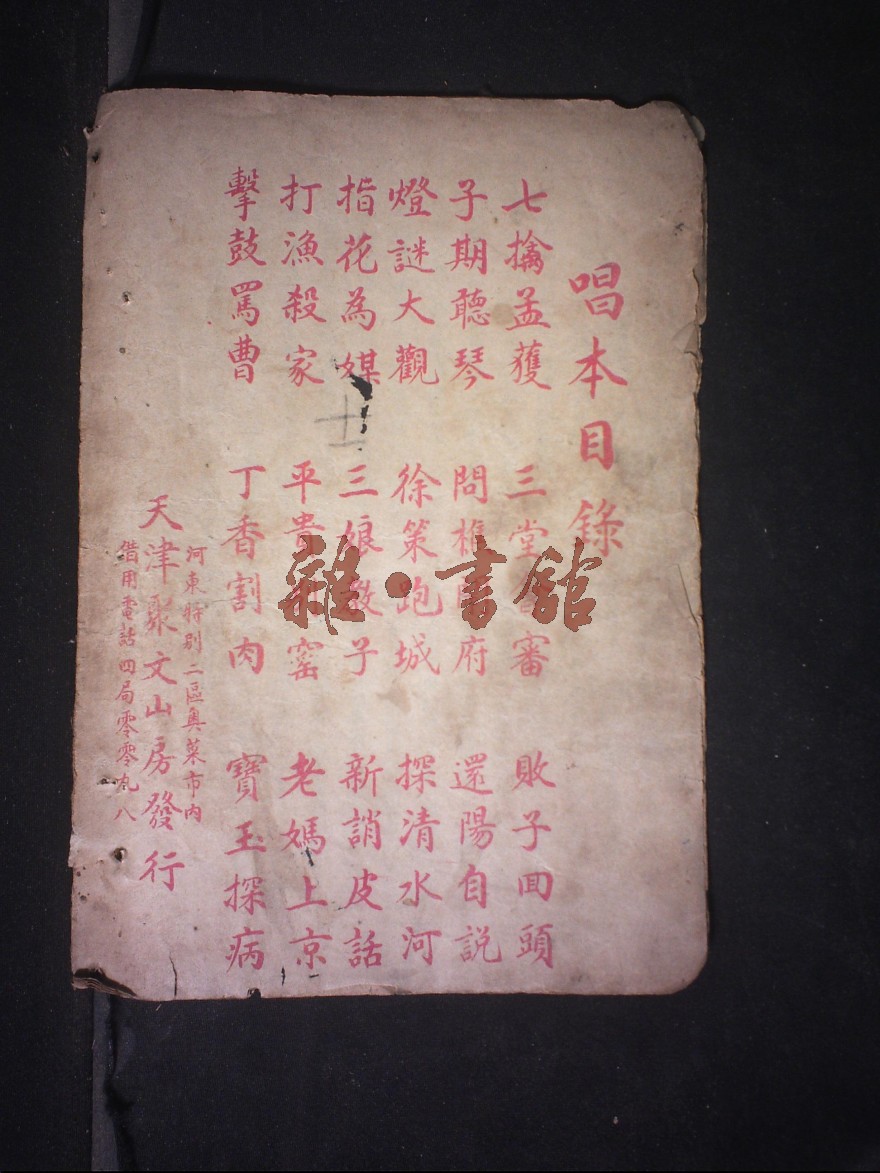 唱本目錄
七擒孟獲 三堂審 敗子回頭
子期聽琴 問樵府 還陽自説
燈謎大觀 徐策跑城 探清水河
指花為媒 三娘教子 新誚皮話
打漁殺家 平貴窑 老媽上京
擊鼓罵曹 丁香割肉 寶玉探病
河東特别二區奥菜市内
天津聚文山房發行
借用電話四局零零九八
雜·書館